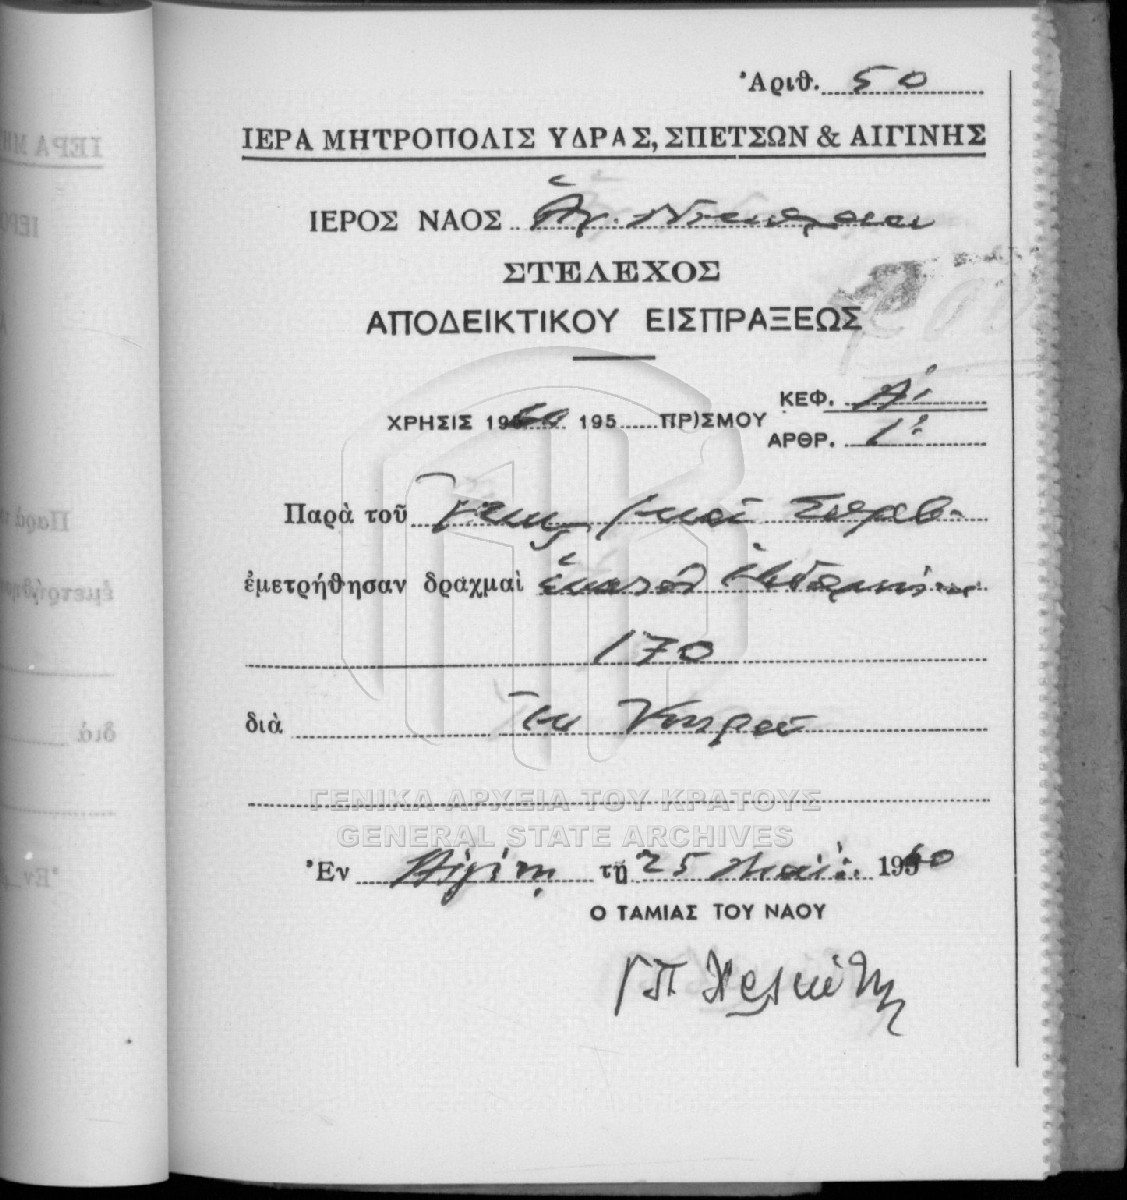 Ἀριθ. 50
ΙΕΡΑ ΜΗΤΡΟΠΟΛΙΣ ΥΔΡΑΣ, ΣΠΕΤΣΩΝ & ΑΙΓΙΝΗΣ
ΙΕΡΟΣ ΝΑΟΣ Ἁγ.
ΣΤΕΛΕΧΟΣ
ΑΠΟΔΕΙΚΤΙΚΟΥ ΕΙΣΠΡΑΞΕΩΣ
ΚΕΦ. Α'
ΧΡΗΣΙΣ 1960 195 ΠΡ)ΣΜΟΥ
ΑΡΘΡ. 1
Παρὰ τοῦ
ἐμετρήθησαν δραχμαὶ ἑκατὸν ἑβδομήκοντα
170
διὰ ἐκ Κηροῦ
ΓΕΝΙΚΑ ΑΡΧΕΙΑ ΤΟΥ ΚΡΑΤΟΥΣ
GENERAL STATE ARCHIVES
Ἐν Αἰγίνῃ τῇ 25 Μαΐου 1960
Ο ΤΑΜΙΑΣ ΤΟΥ ΝΑΟΥ
Γ Π